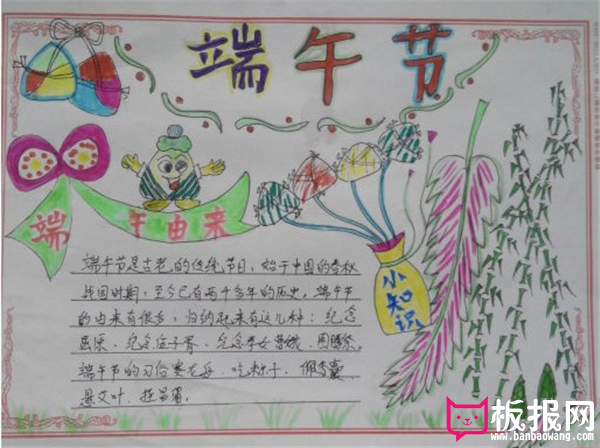 端午节
端午由来
小知识
端午节是古老的传统节日，始于中国的春秋
战国时期，至今已有两千多年的历史。端午节
的由来有很多，归纳起来有这几种：纪念
屈原、纪念伍子胥、纪念孝女曹娥、
端午节的习俗赛龙舟、吃粽子、佩香囊
悬艾叶、挂菖蒲。
板报网
www.banbaowang.com